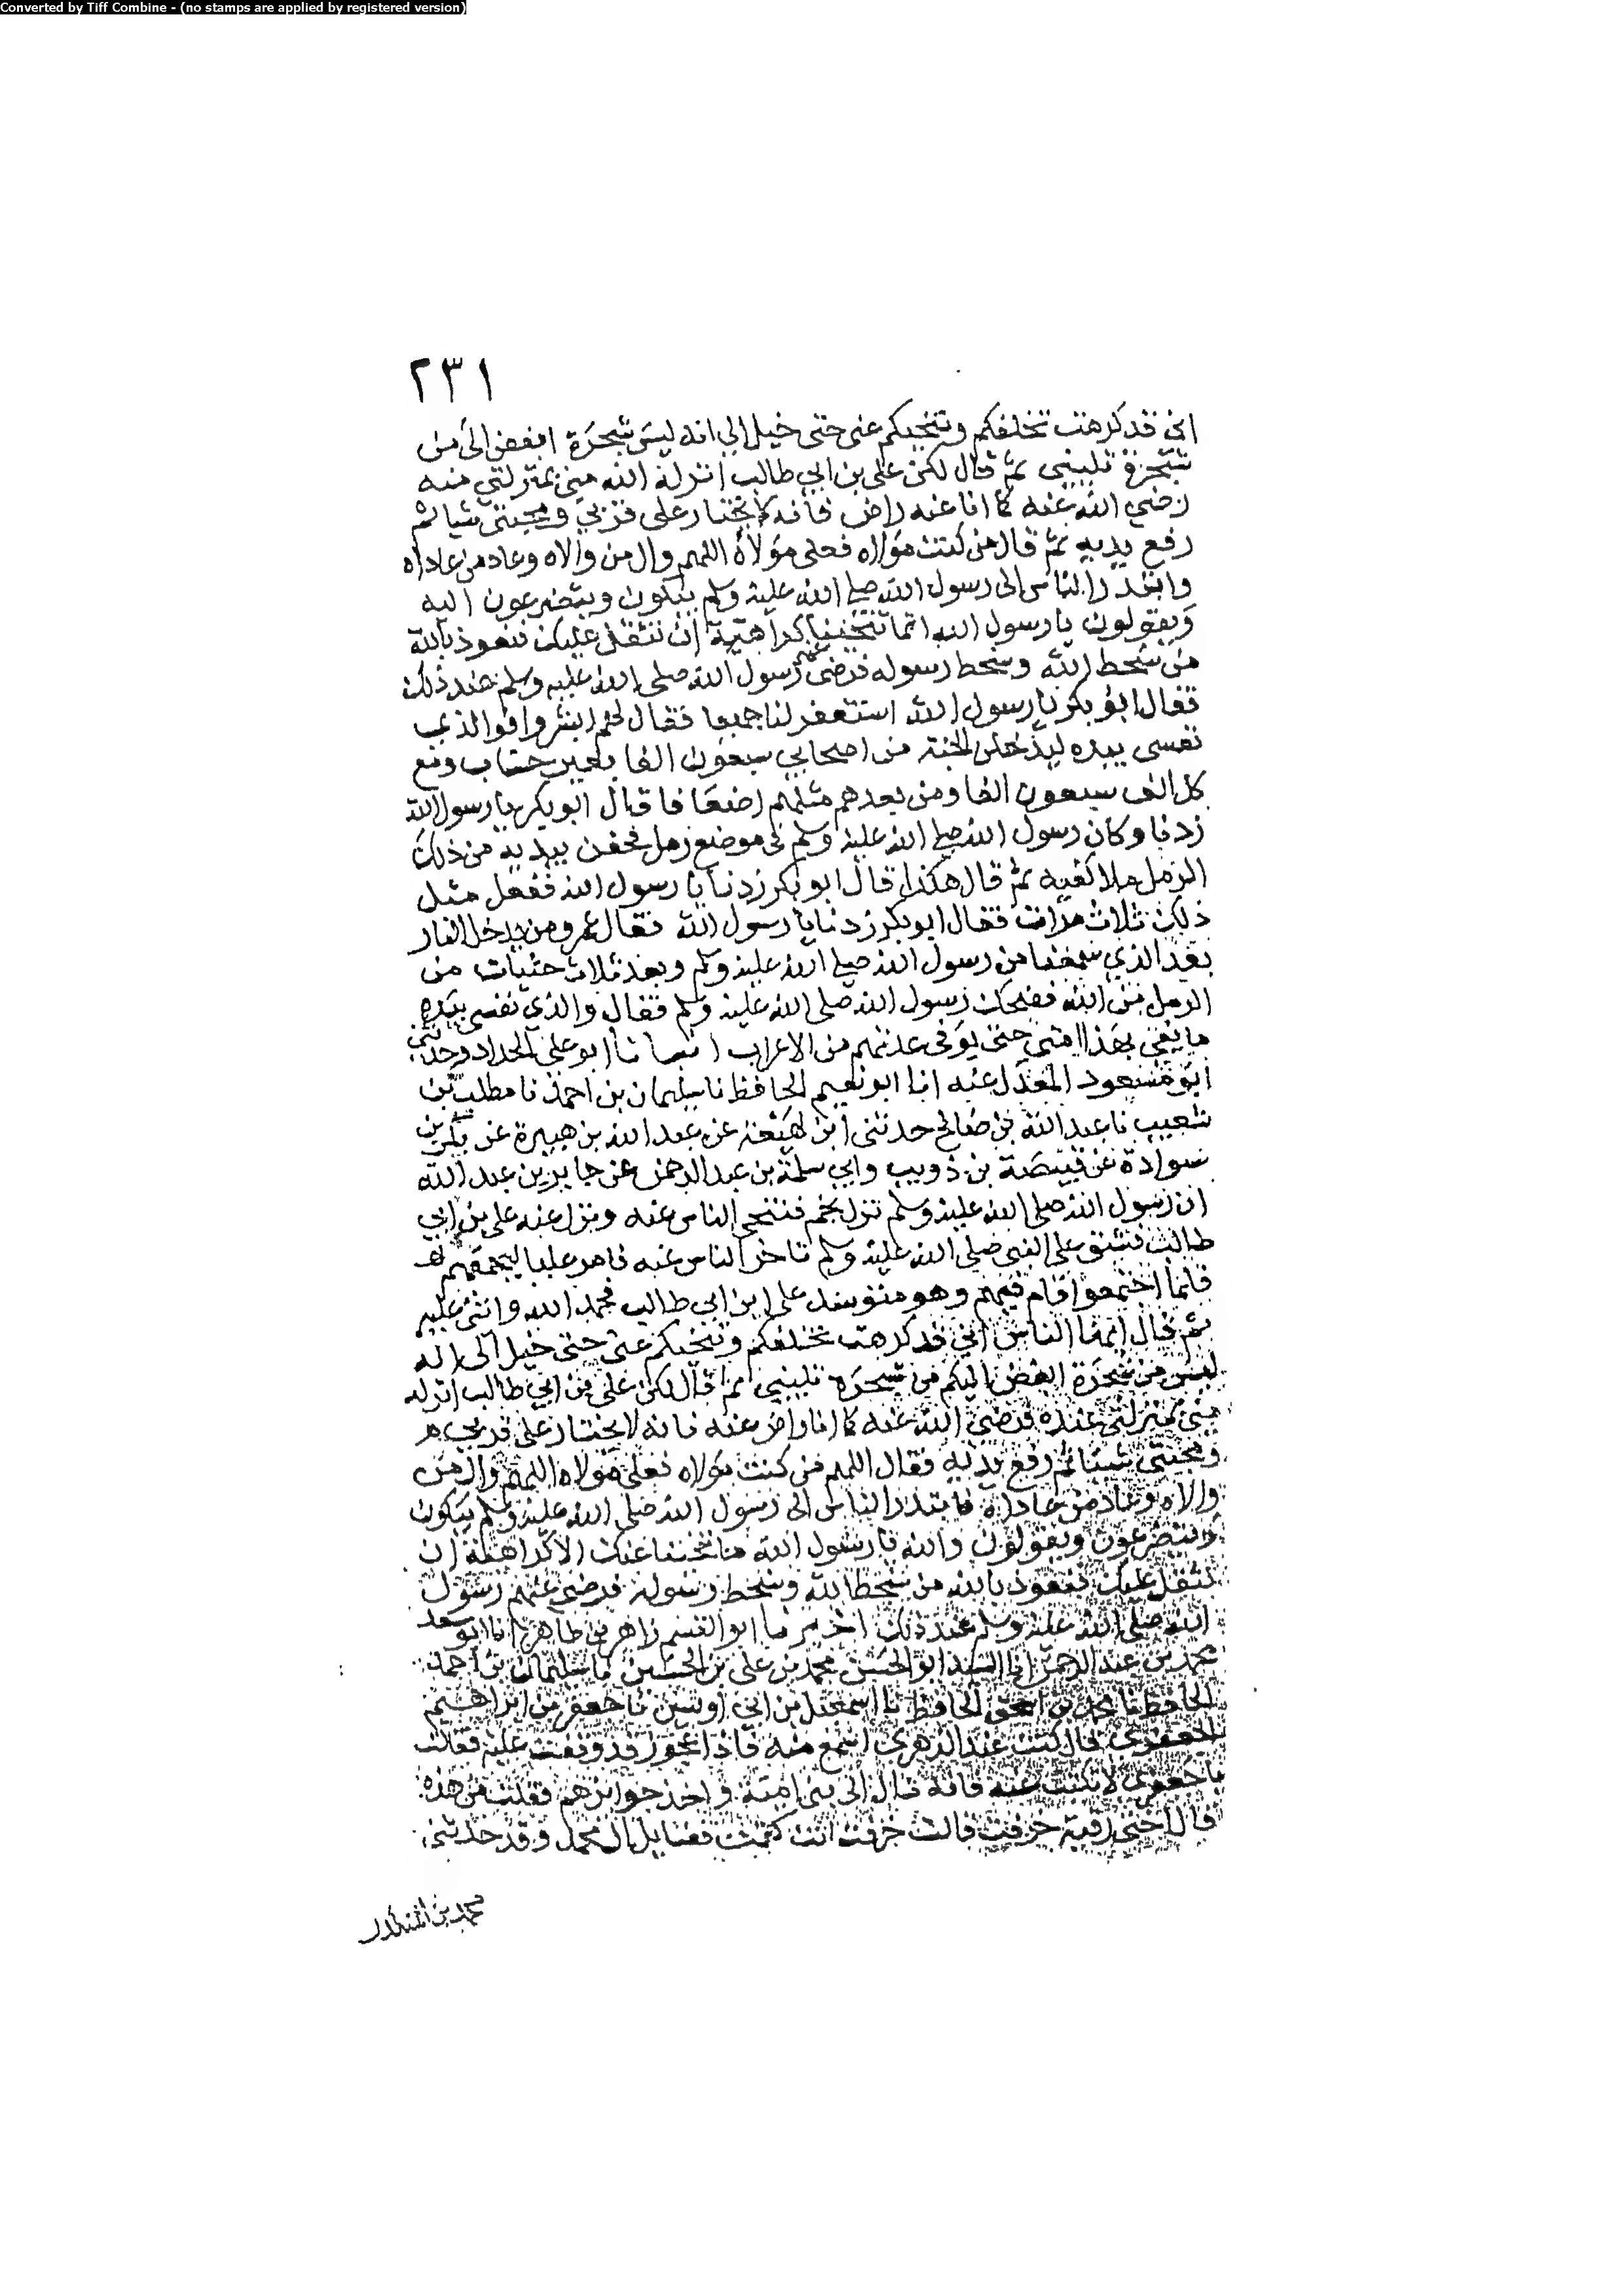 Converted by Tiff Combine - (no stamps are applied by registered version)
٢٣١
اني قد كرهت تخلفكم وتنحيكم عني حتى خيل الي انه ليس شجرة ابغض الى من
شجرة تليني ثم قال لكن على بن ابي طالب انزله الله مني بمنزلتي منه
رضي الله عنه كما انا عنه راض فانه لا يختار على قربي ومحبتى شيا ثم
رفع يديه ثم قال من كنت مولاه فعلى مولاه اللهم وال من والاه وعاد من عاداه
وابتدر الناس الى رسول الله صلى الله عليه وسلم يبكون ويتضرعون اليه
ويقولون يا رسول الله انما تنحينا كراهية ان نثقل عليك فنعوذ بالله
من سخط الله وسخط رسوله فرضى عنهم رسول الله صلى الله عليه وسلم عند ذلك
فقال ابو بكر يا رسول الله استغفر لنا جميعا فقال لهم ابشروا فوالذي
نفسى بيده ليدخلن الجنة من اصحابي سبعون الفا بغير حساب ومع
كل الف سبعون الفا ومن بعدهم مثلهم اضعافا قال ابو بكر يا رسول الله
زدنا وكان رسول الله صلى الله عليه وسلم في موضع رمل فحفن بيديه من ذلك
الرمل ملا كفيه ثم قال هكذا قال ابو بكر زدنا يا رسول الله ففعل مثل
ذلك ثلاث مرات فقال ابو بكر زدنا يا رسول الله فقال عمر ومن يدخل النار
بعد الذي سمعنا من رسول الله صلى الله عليه وسلم وبعد ثلاث حثيات من
الرمل من الله فضحك رسول الله صلى الله عليه وسلم فقال والذي نفسى بيده
ما يفي بهذا امتي حتى يوفى عدتهم من الاعراب انبانا ابو على الحداد وحدثنى
ابو مسعود المعدل عنه انا ابو نعيم الحافظ نا سليمان بن احمد نا مطلب بن
شعيب نا عبد الله بن صالح حدثنى ابن لهيعة عن عبد الله بن هبيرة عن بكر بن
سوادة عن قبيصة بن ذويب وابي سلمة بن عبد الرحمن عن جابر بن عبد الله
ان رسول الله صلى الله عليه وسلم نزل بخم فتنحى الناس عنه ونزل عنه على بن ابي
طالب فشق على النبي صلى الله عليه وسلم تاخر الناس عنه فامر عليا ليجمعهم
فلما اجتمعوا قام فيهم وهو متوسد على ابن ابي طالب فحمد الله واثنى عليه
ثم قال ايها الناس اني قد كرهت تخلفكم وتنحيكم عني حتى خيل الى انه
ليس من شجرة ابغض اليكم من شجرة تليني ثم قال لكن على بن ابي طالب انزله
مني بمنزلتى عنده فرضي الله عنه كما انا راض عنه فانه لا يختار على قربي
ومحبتى شيئا ثم رفع يديه فقال اللهم من كنت مولاه فعلى مولاه اللهم وال من
والاه وعاد من عاداه فابتدر الناس الى رسول الله صلى الله عليه وسلم يبكون
ويتضرعون ويقولون والله يا رسول الله ما تنحينا عنك الا كراهية ان
نثقل عليك فنعوذ بالله من سخط الله وسخط رسوله فرضي عنهم رسول
الله صلى الله عليه وسلم عند ذلك اخبرنا ابو القسم زاهر بن طاهر انا ابو سعد
محمد بن عبد الرحمن انا السيد ابو الحسن محمد بن على بن الحسين نا سليمان بن احمد
الحافظ نا محمد بن اسحق الحافظ نا اسمعيل بن ابي اويس نا جعفر بن ابراهيم
الجعفري قال كنت عند الزهرى اسمع منه فاذا عجوز قد وقفت عليه فقالت
يا جعفري لا تكتب عنه فانه مال الى بنى امية واخذ جوائزهم فقلت من هذه
قال اختى رقية خرفت قالت خرفت انت كتمت فضايل ال محمد وقد حدثنى
محمد بن المنكدر